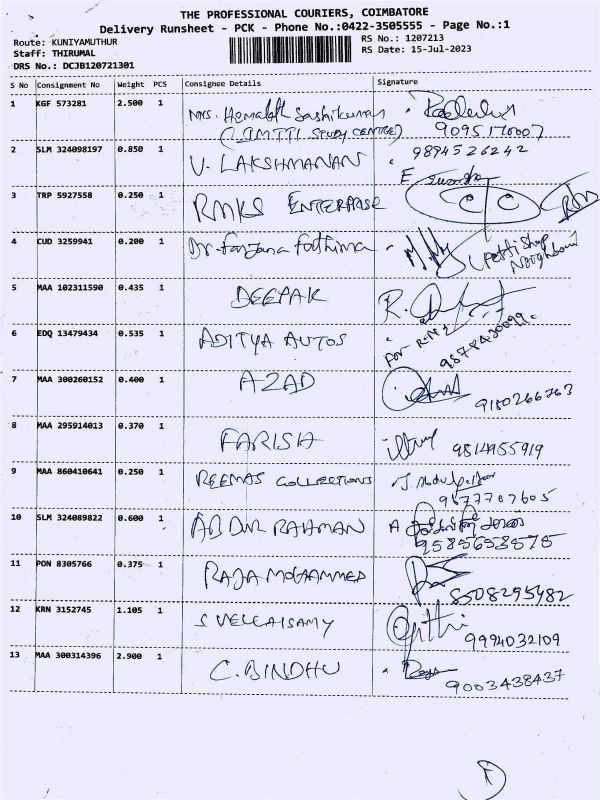 THE PROFESSIONAL COURIERS, COIMBATORE
Delivery Runsheet - PCK - Phone No.:0422-3505555 - Page No.:1
Route: KUNIYAMUTHUR RS No.: 1207213
Staff: THIRUMAL RS Date: 15-Jul-2023
DRS No.: DCJB120721301
S No Consignment No Weight PCS Consignee Details Signature
1 KGF 573281 2.500 1 Mrs. Hemalath Sashikumar
STUDY CENTRE) 9095170007
2 SLM 324098197 0.850 1 V. LAKSHMANAN 9894526242
3 TRP 5927558 0.250 1 RMKS ENTERPRISE
4 CUD 3259941 0.200 1 Dr. Farjana Fathima
5 MAA 102311590 0.435 1 DEEPAK
6 EDQ 13479434 0.535 1 ADITYA AUTOS
7 MAA 300260152 0.400 1 AZAD
8 MAA 295914013 0.370 1 FARISH
9 MAA 860410641 0.250 1 REEMAS COLLECTIONS
10 SLM 324089822 0.600 1 ABDUR RAHMAN
11 PON 8305766 0.375 1 RAJA MOHAMMED
8508295982
12 KRN 3152745 1.105 1 S VELLAISAMY
9994032109
13 MAA 300314396 2.900 1 C. BINDHU
9003438437